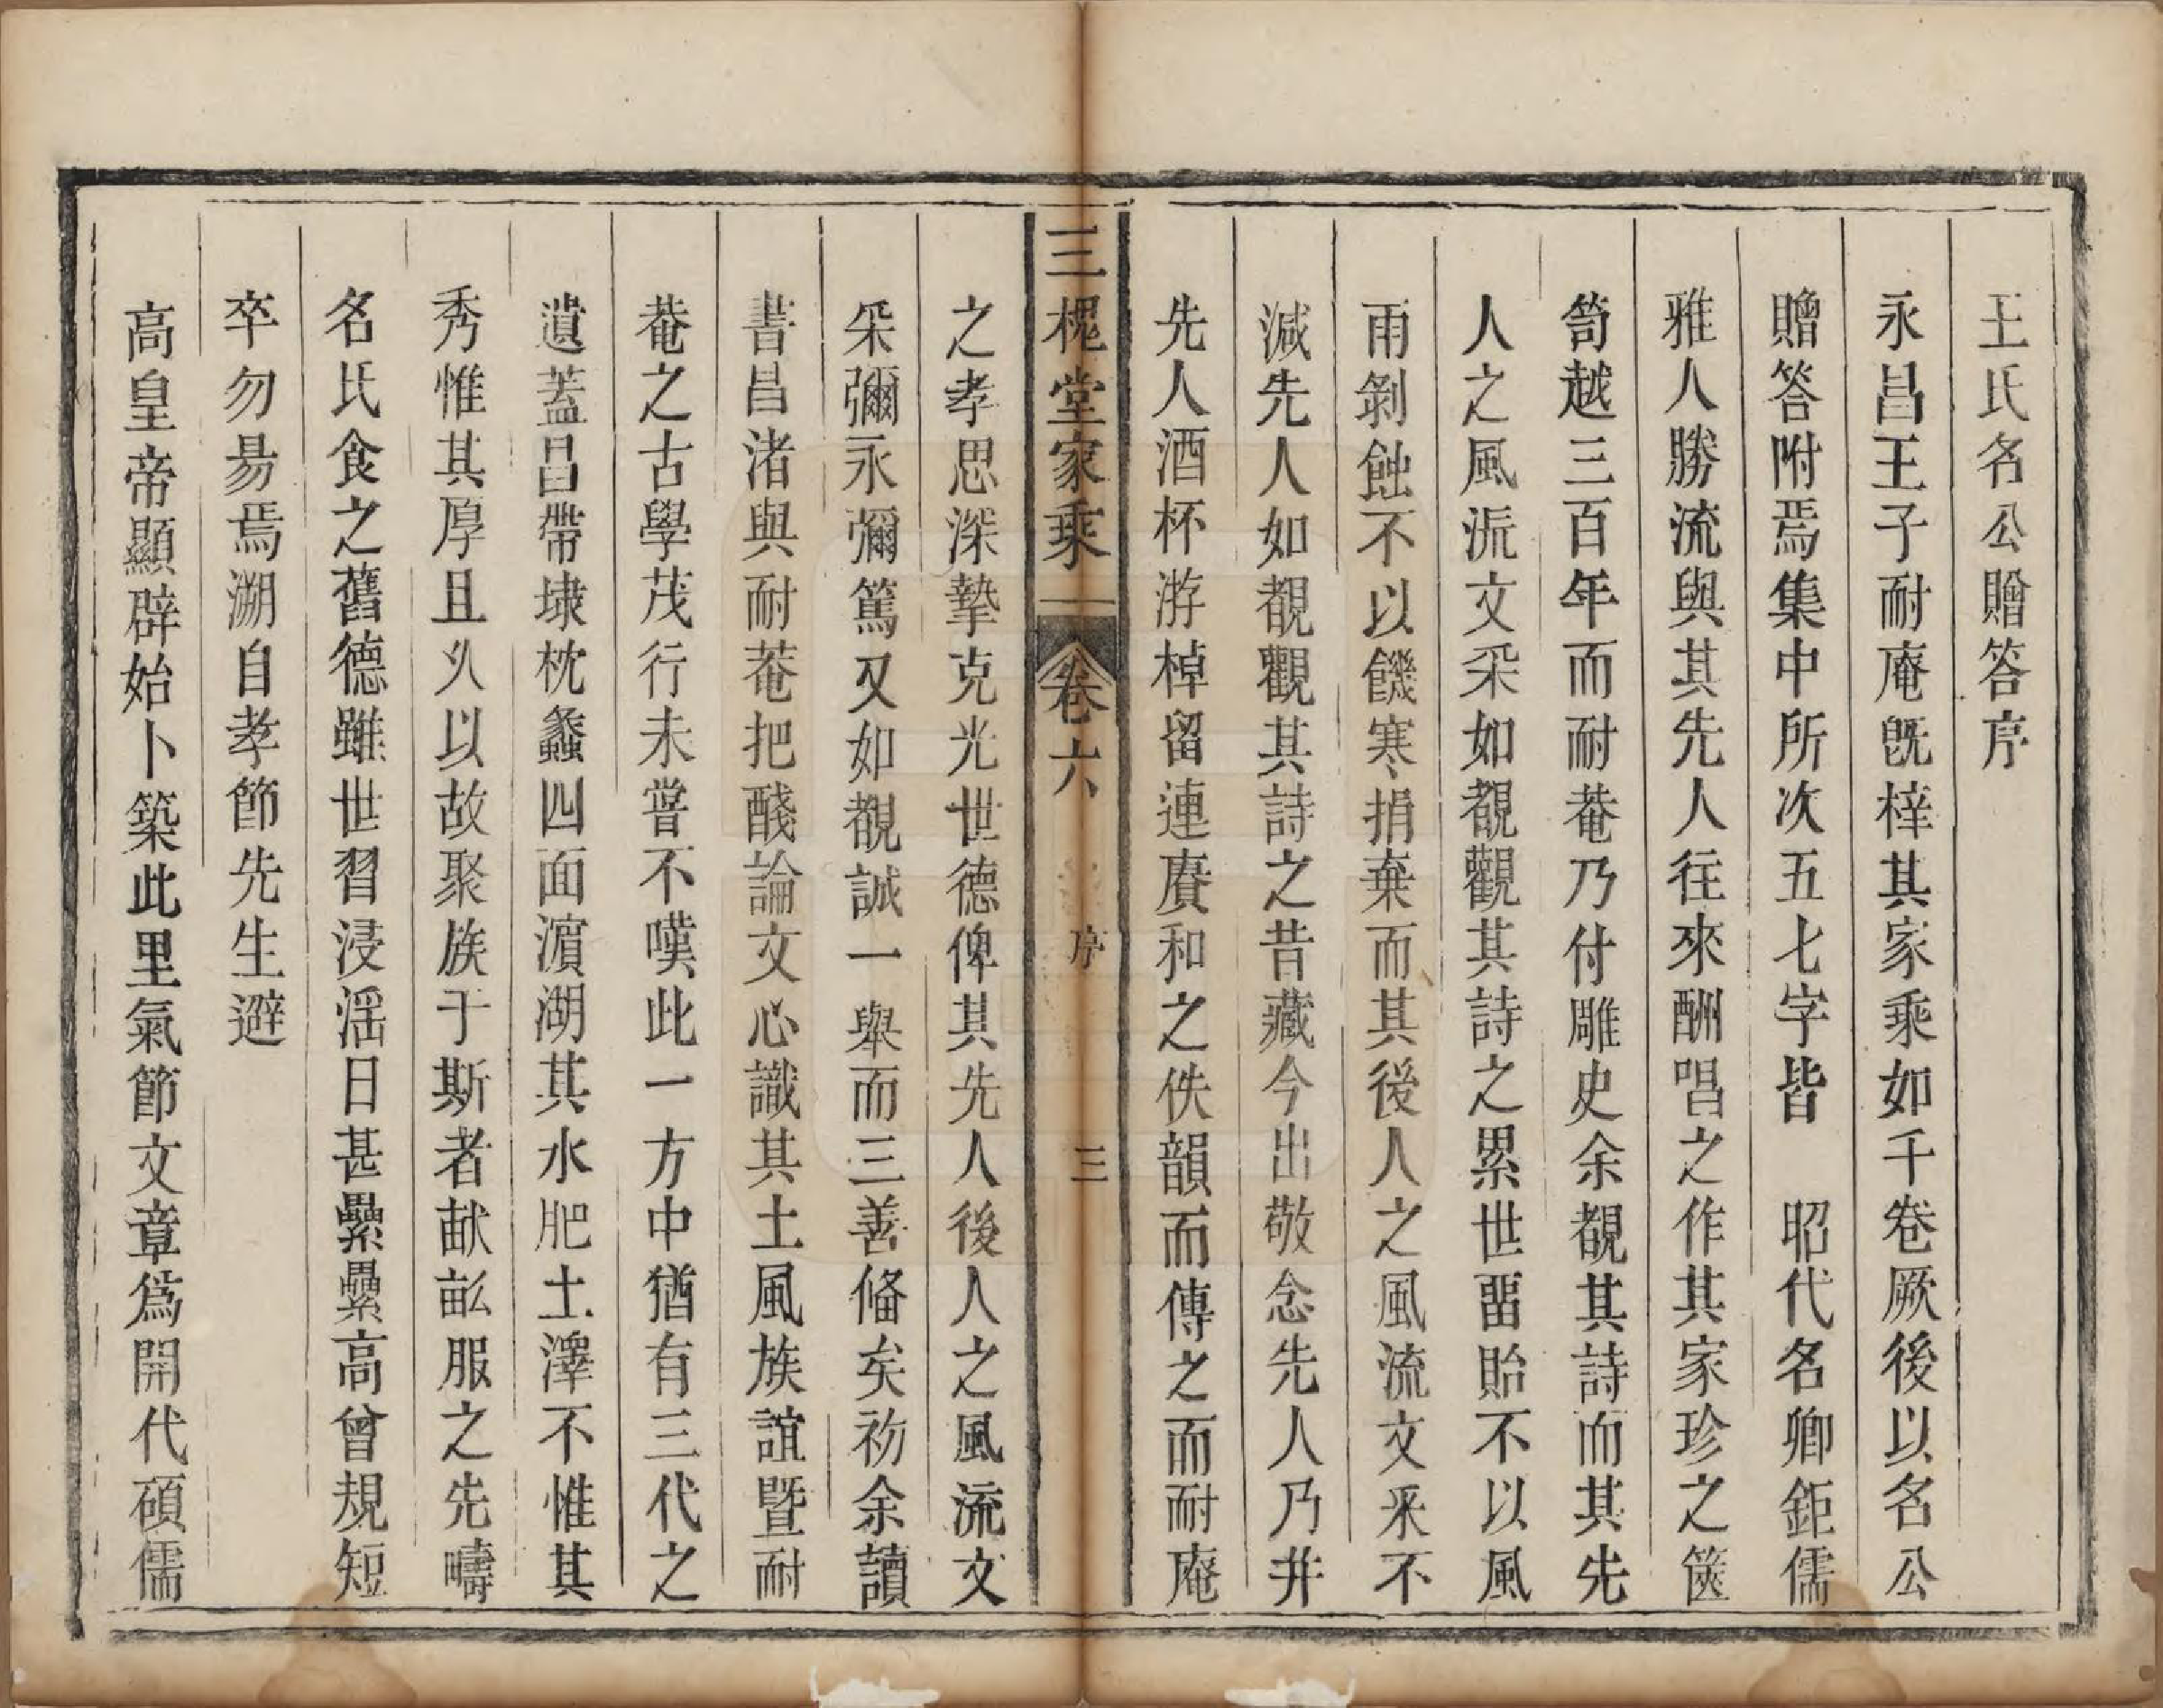 王氏名公贈答序
永昌王子耐庵旣梓其家乘如千卷厥後以名公
贈答附焉集中所次五七字皆　昭代名卿鉅儒
雅人勝流與其先人往來酬唱之作其家珍之篋
笥越三百年而耐菴乃付雕史余覩其詩而其先
人之風流文采如覩觀其詩之累世畱貽不以風
雨剝蝕不以饑寒捐棄而其後人之風流文采不
減先人如覩觀其詩之昔藏今出敬念先人乃幷
先人酒杯游棹留連賡和之佚韻而傳之而耐庵
三槐堂家乘　卷六　序　三
之孝思深摯克光世德俾其先人後人之風流文
采彌永彌篤又如覩誠一舉而三善俻矣初余讀
書昌渚與耐菴把醆論文心識其土風族誼暨耐
菴之古學茂行未嘗不嘆此一方中猶有三代之
遺蓋昌帶埭枕蠡四面濵湖其水肥土澤不惟其
秀惟其厚且久以故聚族于斯者畎畝服之先疇
名氏食之舊德雖世習浸滛日甚纍纍高曾規短
卒勿易焉溯自孝節先生避
高皇帝顯辟始卜築此里氣節文章爲開代碩儒